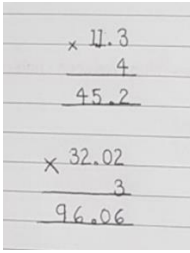 × 11.3
4
45.2
× 32.02
3
96.06